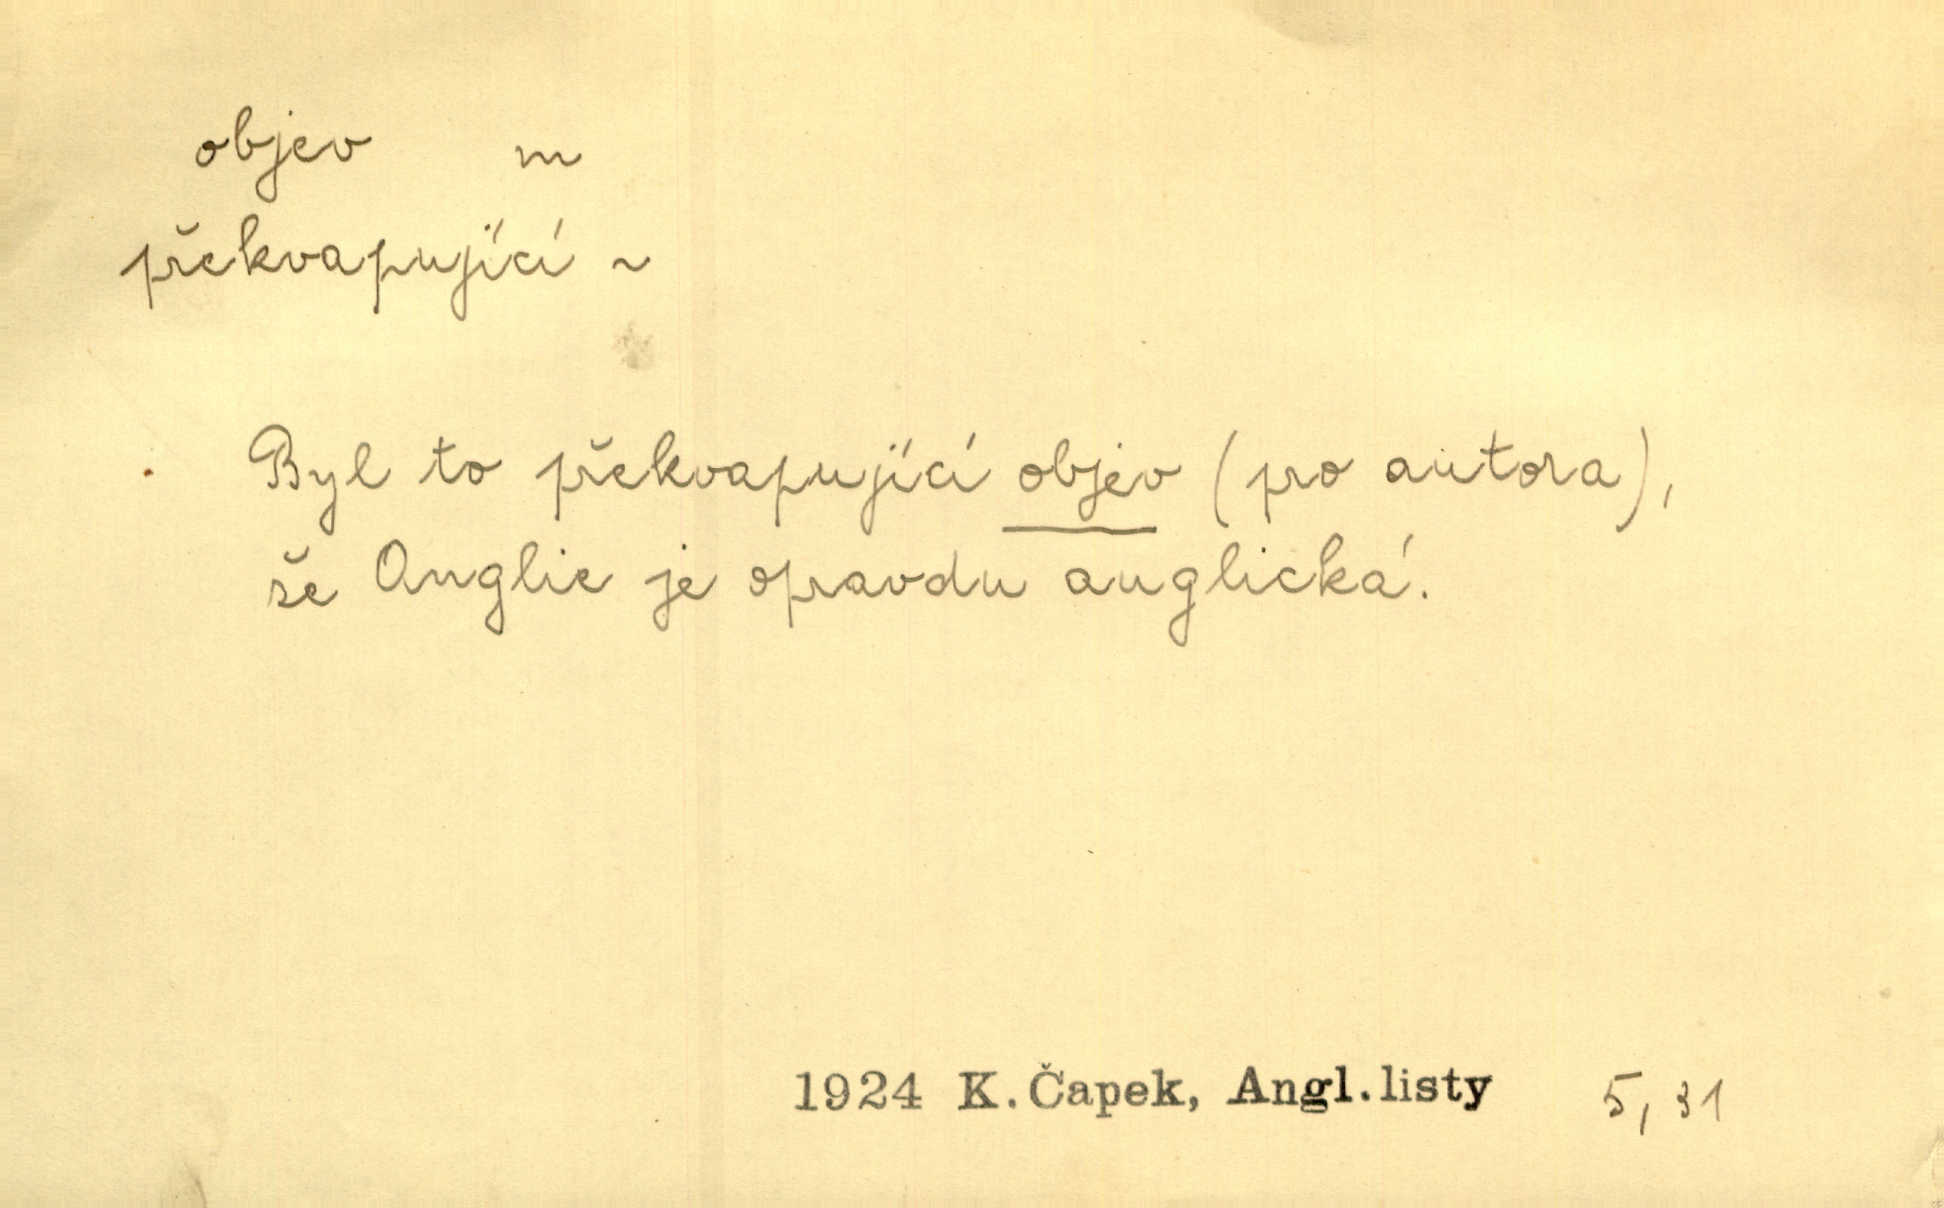 objev m
překvapující ~
Byl to překvapující objev (pro autora),
že Anglie je opravdu anglická.
1924 K. Čapek, Angl. listy 5, 31